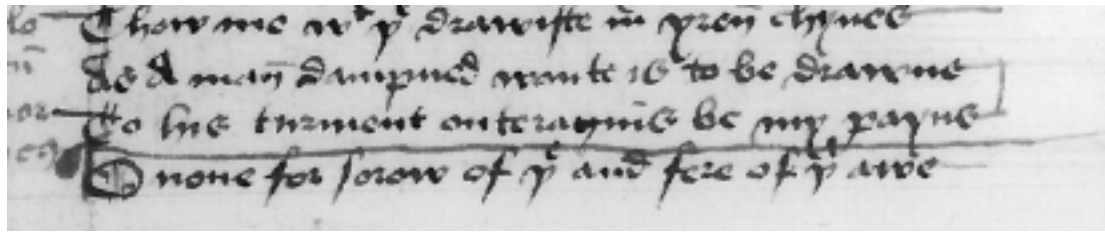 Thow me wᵗ yᵘ drawiste in yren chynes
As A man dampned wonte is to be drawne
To his turment outeragius be my payns
O none for sorow of yᵉ and fere of yⁱ awe